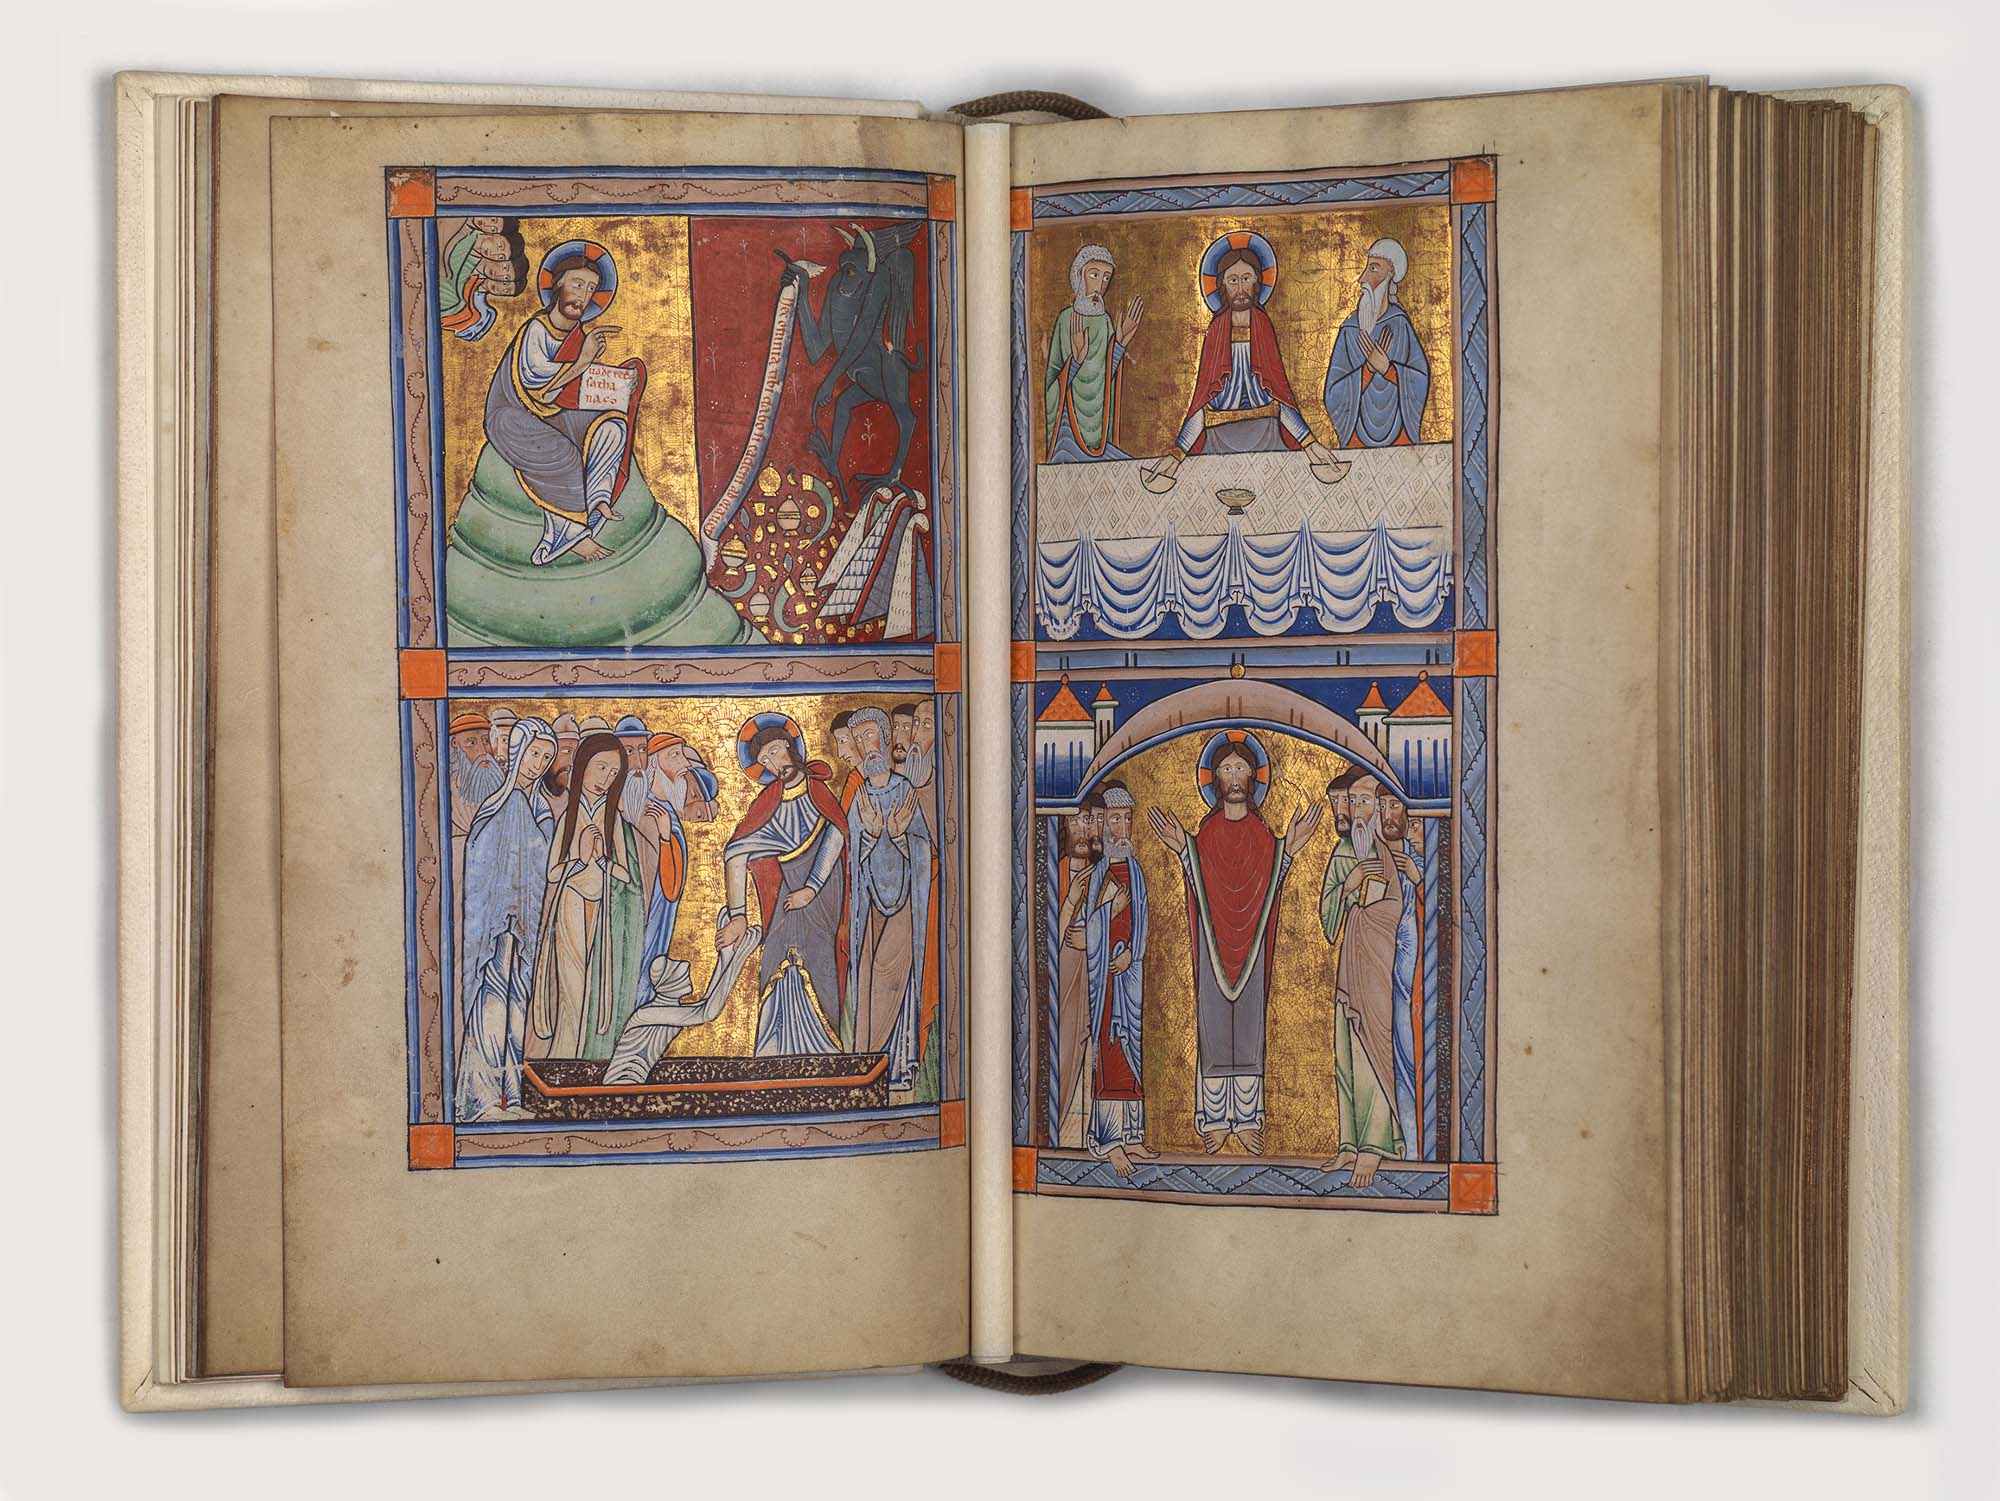 uade ret
satha
nas
hec omnia tibi dabo si cadens adoraueris